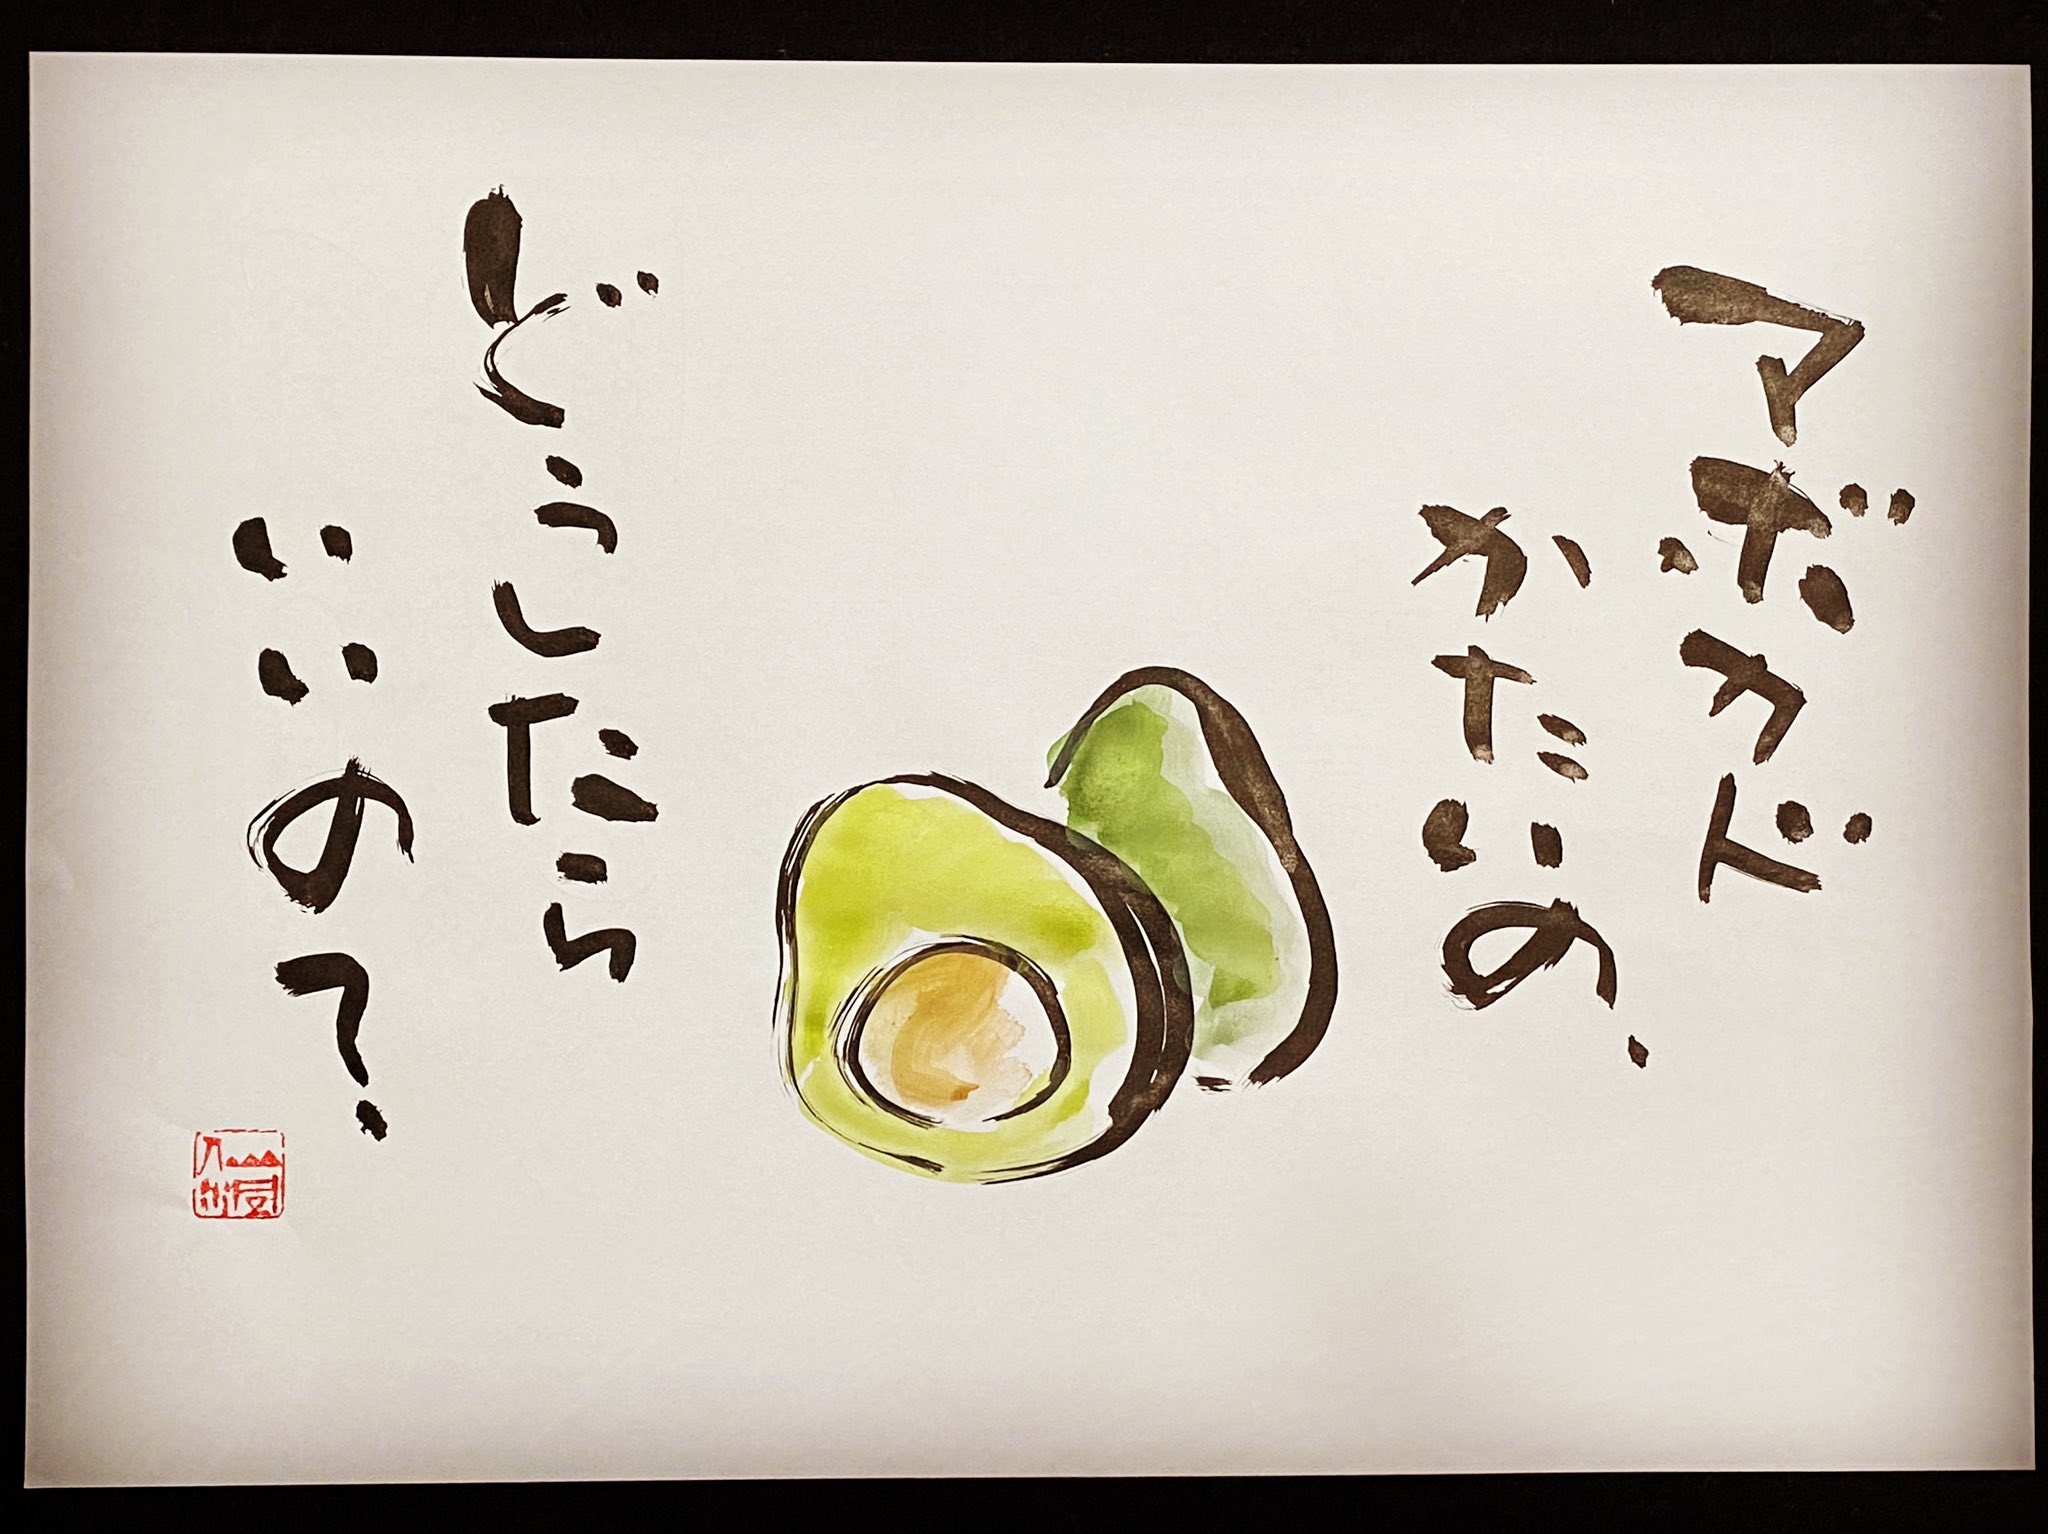 マボカド
かたいの、
どうしたら
いいの？